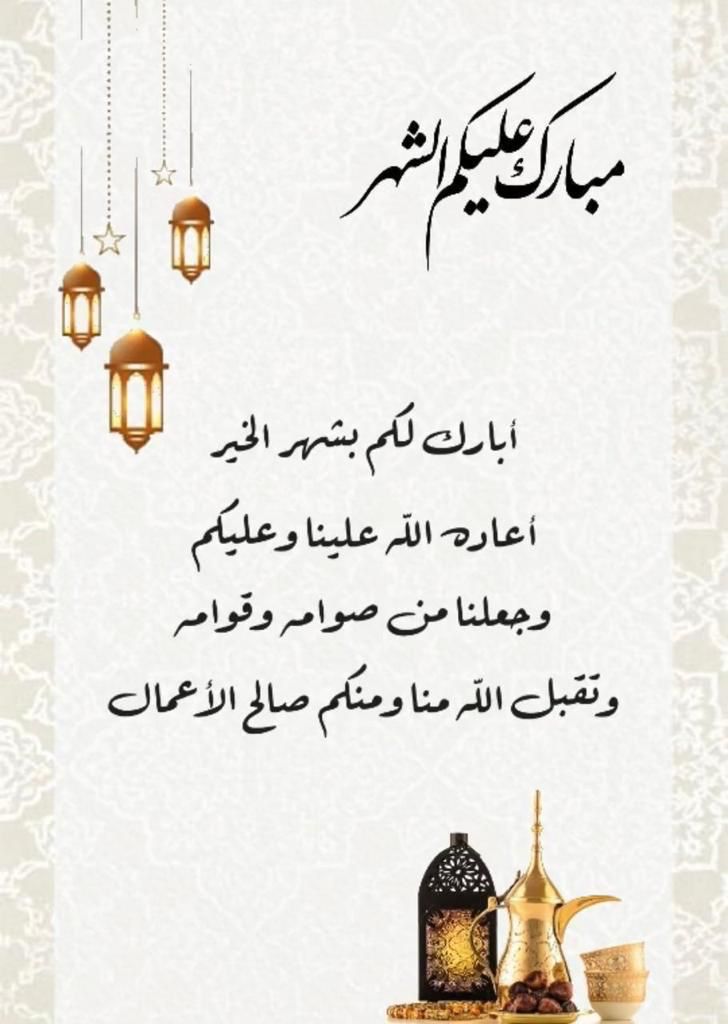 مبارك عليكم الشهر
أبارك لكم بشهر الخير
أعاده الله علينا وعليكم
وجعلنا من صوامه وقوامه
وتقبل الله منا ومنكم صالح الأعمال